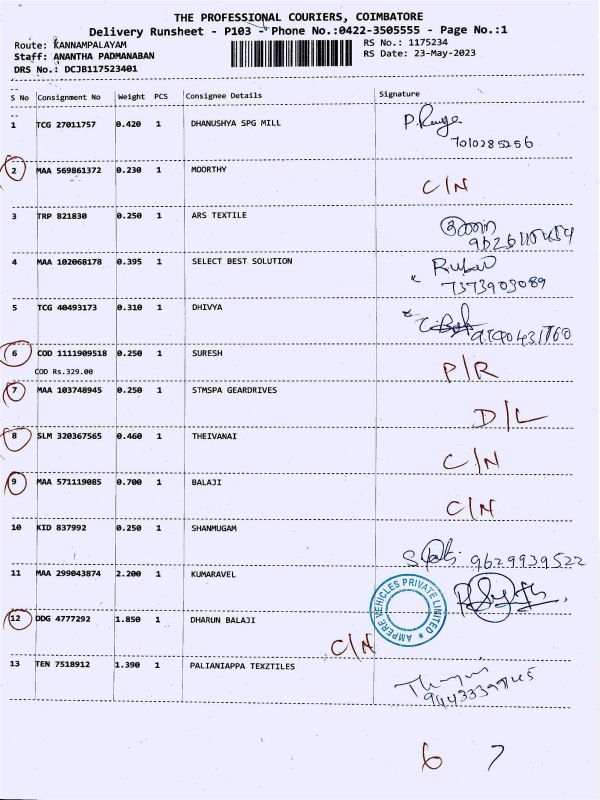 THE PROFESSIONAL COURIERS, COIMBATORE
Delivery Runsheet - P103 - Phone No.:0422-3505555 - Page No.:1
Route: KANNAMPALAYAM
RS No.: 1175234
Staff: ANANTHA PADMANABAN
RS Date: 23-May-2023
DRS No.: DCJB117523401
S No Consignment No Weight PCS Consignee Details Signature
1 TCG 27011757 0.420 1 DHANUSHYA SPG MILL
7010285256
2 MAA 569861372 0.230 1 MOORTHY C/N
3 TRP 821830 0.250 1 ARS TEXTILE
4 MAA 102068178 0.395 1 SELECT BEST SOLUTION
7373903089
5 TCG 40493173 0.310 1 DHIVYA
6 COD 1111909518 0.250 1 SURESH P/R
COD Rs.329.00
7 MAA 103748945 0.250 1 STMSPA GEARDRIVES D/L
8 SLM 320367565 0.460 1 THEIVANAI C/N
9 MAA 571119085 0.700 1 BALAJI C/N
10 KID 837992 0.250 1 SHANMUGAM
9629939522
11 MAA 299043874 2.200 1 KUMARAVEL
AMPERE VEHICLES PRIVATE LIMITED
12 DDG 4777292 1.850 1 DHARUN BALAJI C/N
13 TEN 7518912 1.390 1 PALIANIAPPA TEXZTILES
6 7